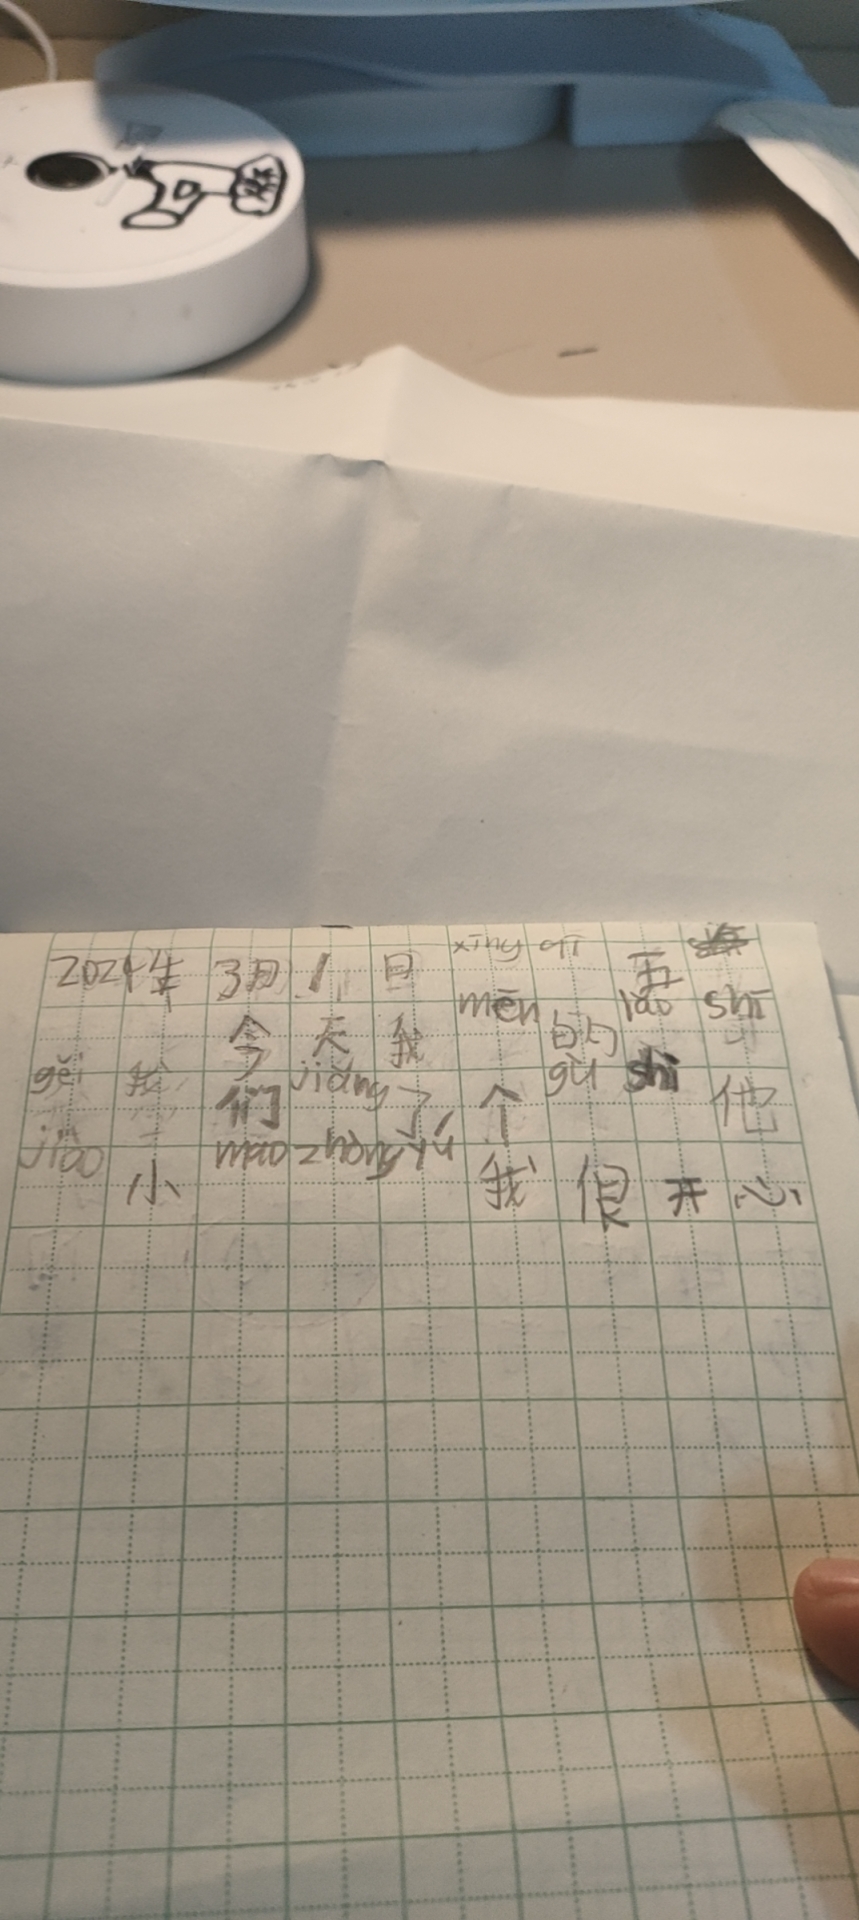 2024年 3月 1 日 xīng qī 五
今天我 mēn 的 lǎo shī
gěi 我们 jiǎng 了个 gù shi 他
jiào 小 māo zhōng yú 我很开心